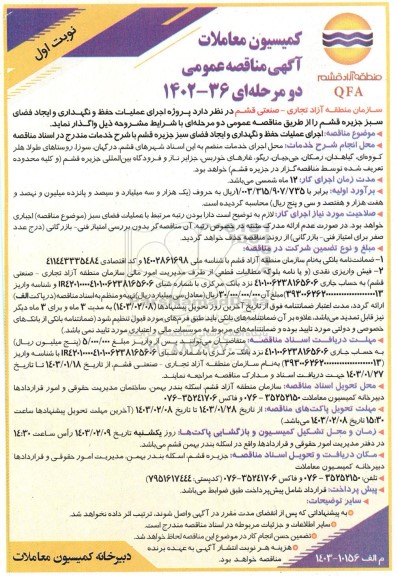 نوبت اول
کمیسیون معاملات
آگهی مناقصه عمومی
دو مرحله‌ای ۳۶-۱۴۰۲
منطقه آزاد قشم
QFA
سازمان منطقه آزاد تجاری - صنعتی قشم در نظر دارد پروژه اجرای عملیات حفظ و نگهداری و ایجاد فضای
سبز جزیره قشم را از طریق مناقصه عمومی دو مرحله‌ای با شرایط مشروحه ذیل واگذار نماید.
موضوع مناقصه: اجرای عملیات حفظ و نگهداری و ایجاد فضای سبز جزیره قشم با شرح خدمات مندرج در اسناد مناقصه
محل انجام شرح خدمات: محل اجرای خدمات منضم به این اسناد شهرهای قشم، درگهان، سوزا، روستاهای طولا، هلر
کووه‌ای، گیاهدان، رمکان، جی‌جیان، ریگو، غارهای خوربس، جزایر ناز و فرودگاه بین‌المللی جزیره قشم (و کلیه محدوده
تعریف شده توسط مناقصه‌گزار در جزیره قشم) خواهد بود.
مدت زمان اجرای کار: ۱۲ ماه شمسی می‌باشد.
برآورد اولیه: برابر با ۱/۰۰۳/۳۱۵/۹۰۷/۷۳۵ ریال به حروف (یک هزار و سه میلیارد و سیصد و پانزده میلیون و نهصد و
هفت هزار و هفتصد و سی و پنج ریال) محاسبه گردیده است.
صلاحیت مورد نیاز اجرای کار: لازم به توضیح است دارا بودن رتبه مرتبط با عملیات فضای سبز (موضوع مناقصه) اجباری
خواهد بود. در صورت عدم ارائه مدرک مثبته در خصوص رتبه، آن مناقصه‌گر بدون بررسی امتیاز فنی - بازرگانی (درج عدد
صفر برای امتیاز فنی - بازرگانی) از روند مناقصه حذف خواهد گردید.
مبلغ و نوع تضمین شرکت در مناقصه:
۱- ضمانت‌نامه بانکی به‌نام سازمان منطقه آزاد قشم با شناسه ملی ۱۴۰۰۲۸۶۱۶۹۸ و کد اقتصادی ۴۱۱۴۴۳۳۳۵۴۸۴
۲- فیش واریزی نقدی (و یا نامه بلوکه مطالبات قطعی از طرف مدیریت امور مالی سازمان منطقه آزاد تجاری - صنعتی
قشم) به حساب جاری ۴۱۰۱۰۰۶۲۳۸۱۶۵۶۰۶ نزد بانک مرکزی با شماره شبای
ارائه گردد. مدت اعتبار ضمانتنامه فوق از تاریخ آخرین روز تحویل پیشنهادها (۱۴۰۳/۰۲/۰۸) به مدت ۳ ماه و برای ۳ ماه دیگر
نیز قابل تمدید می‌باشد. علاوه بر آن ضمانتنامه‌های بانکی باید طبق فرم‌های مورد قبول تنظیم شود (ضمانتنامه بانکی از بانک‌های
خصوصی و دولتی مورد تایید بوده و ضمانتنامه‌های مربوط به موسسات مالی و اعتباری مورد تایید نمی باشد)
مهلت دریافت اسناد مناقصه: متقاضیان می‌توانند پس از واریز مبلغ ۵/۰۰۰/۰۰۰ (پنج میلیون ریال)
به حساب جاری ۴۱۰۱۰۰۶۲۳۸۱۶۵۶۰۶ نزد بانک مرکزی با شماره شبای
به‌نام سازمان منطقه آزاد تجاری - صنعتی قشم، از تاریخ ۱۴۰۳/۰۱/۱۸ تا تاریخ
۱۴۰۳/۰۱/۲۷ جهت دریافت اسناد و مدارک مناقصه مراجعه نمایند.
محل تحویل اسناد مناقصه: سازمان منطقه آزاد قشم، اسکله بندر بهمن، ساختمان مدیریت حقوقی و امور قراردادها
دبیرخانه کمیسیون معاملات ۳۵۲۵۲۱۵۰-۰۷۶ و فاکس ۳۵۲۴۱۷۰۶-۰۷۶
مهلت تحویل پاکت‌های مناقصه: از تاریخ ۱۴۰۳/۰۱/۲۸ تا تاریخ ۱۴۰۳/۰۲/۰۸ (آخرین مهلت تحویل پیشنهادها ساعت
۱۵:۳۰ تاریخ ۱۴۰۳/۰۲/۰۸ می‌باشد)
زمان و محل تشکیل کمیسیون و بازگشایی پاکت‌ها: روز یکشنبه تاریخ ۱۴۰۳/۰۲/۰۹ رأس ساعت ۱۴:۳۰
در دفتر مدیریت امور حقوقی و قراردادها، واقع در اسکله بندر بهمن قشم می‌باشد.
مکان دریافت و تحویل اسناد مناقصه: جزیره قشم، اسکله بندر بهمن، مدیریت امور حقوقی و قراردادها
دبیرخانه کمیسیون معاملات
تلفن: ۳۵۲۵۲۱۵۰-۰۷۶ و فاکس ۳۵۲۴۱۷۰۶-۰۷۶ (کدپستی: ۷۹۵۱۶۱۷۴۴۴)
پیش پرداخت: قرارداد شامل پیش‌پرداخت طبق ضوابط می‌باشد.
سایر توضیحات:
به پیشنهاداتی که پس از انقضای مدت مقرر در آگهی واصل شوند، ترتیب اثر داده نخواهد شد.
سایر اطلاعات و جزئیات مربوطه در اسناد مناقصه مندرج است.
تضمین حسن انجام کار در موضوع این مناقصه لحاظ خواهد شد.
هزینه هر نوبت انتشار آگهی به عهده برنده
مناقصه خواهد بود.
م الف ۱۰۱۵۶-۱۴۰۳
دبیرخانه کمیسیون معاملات